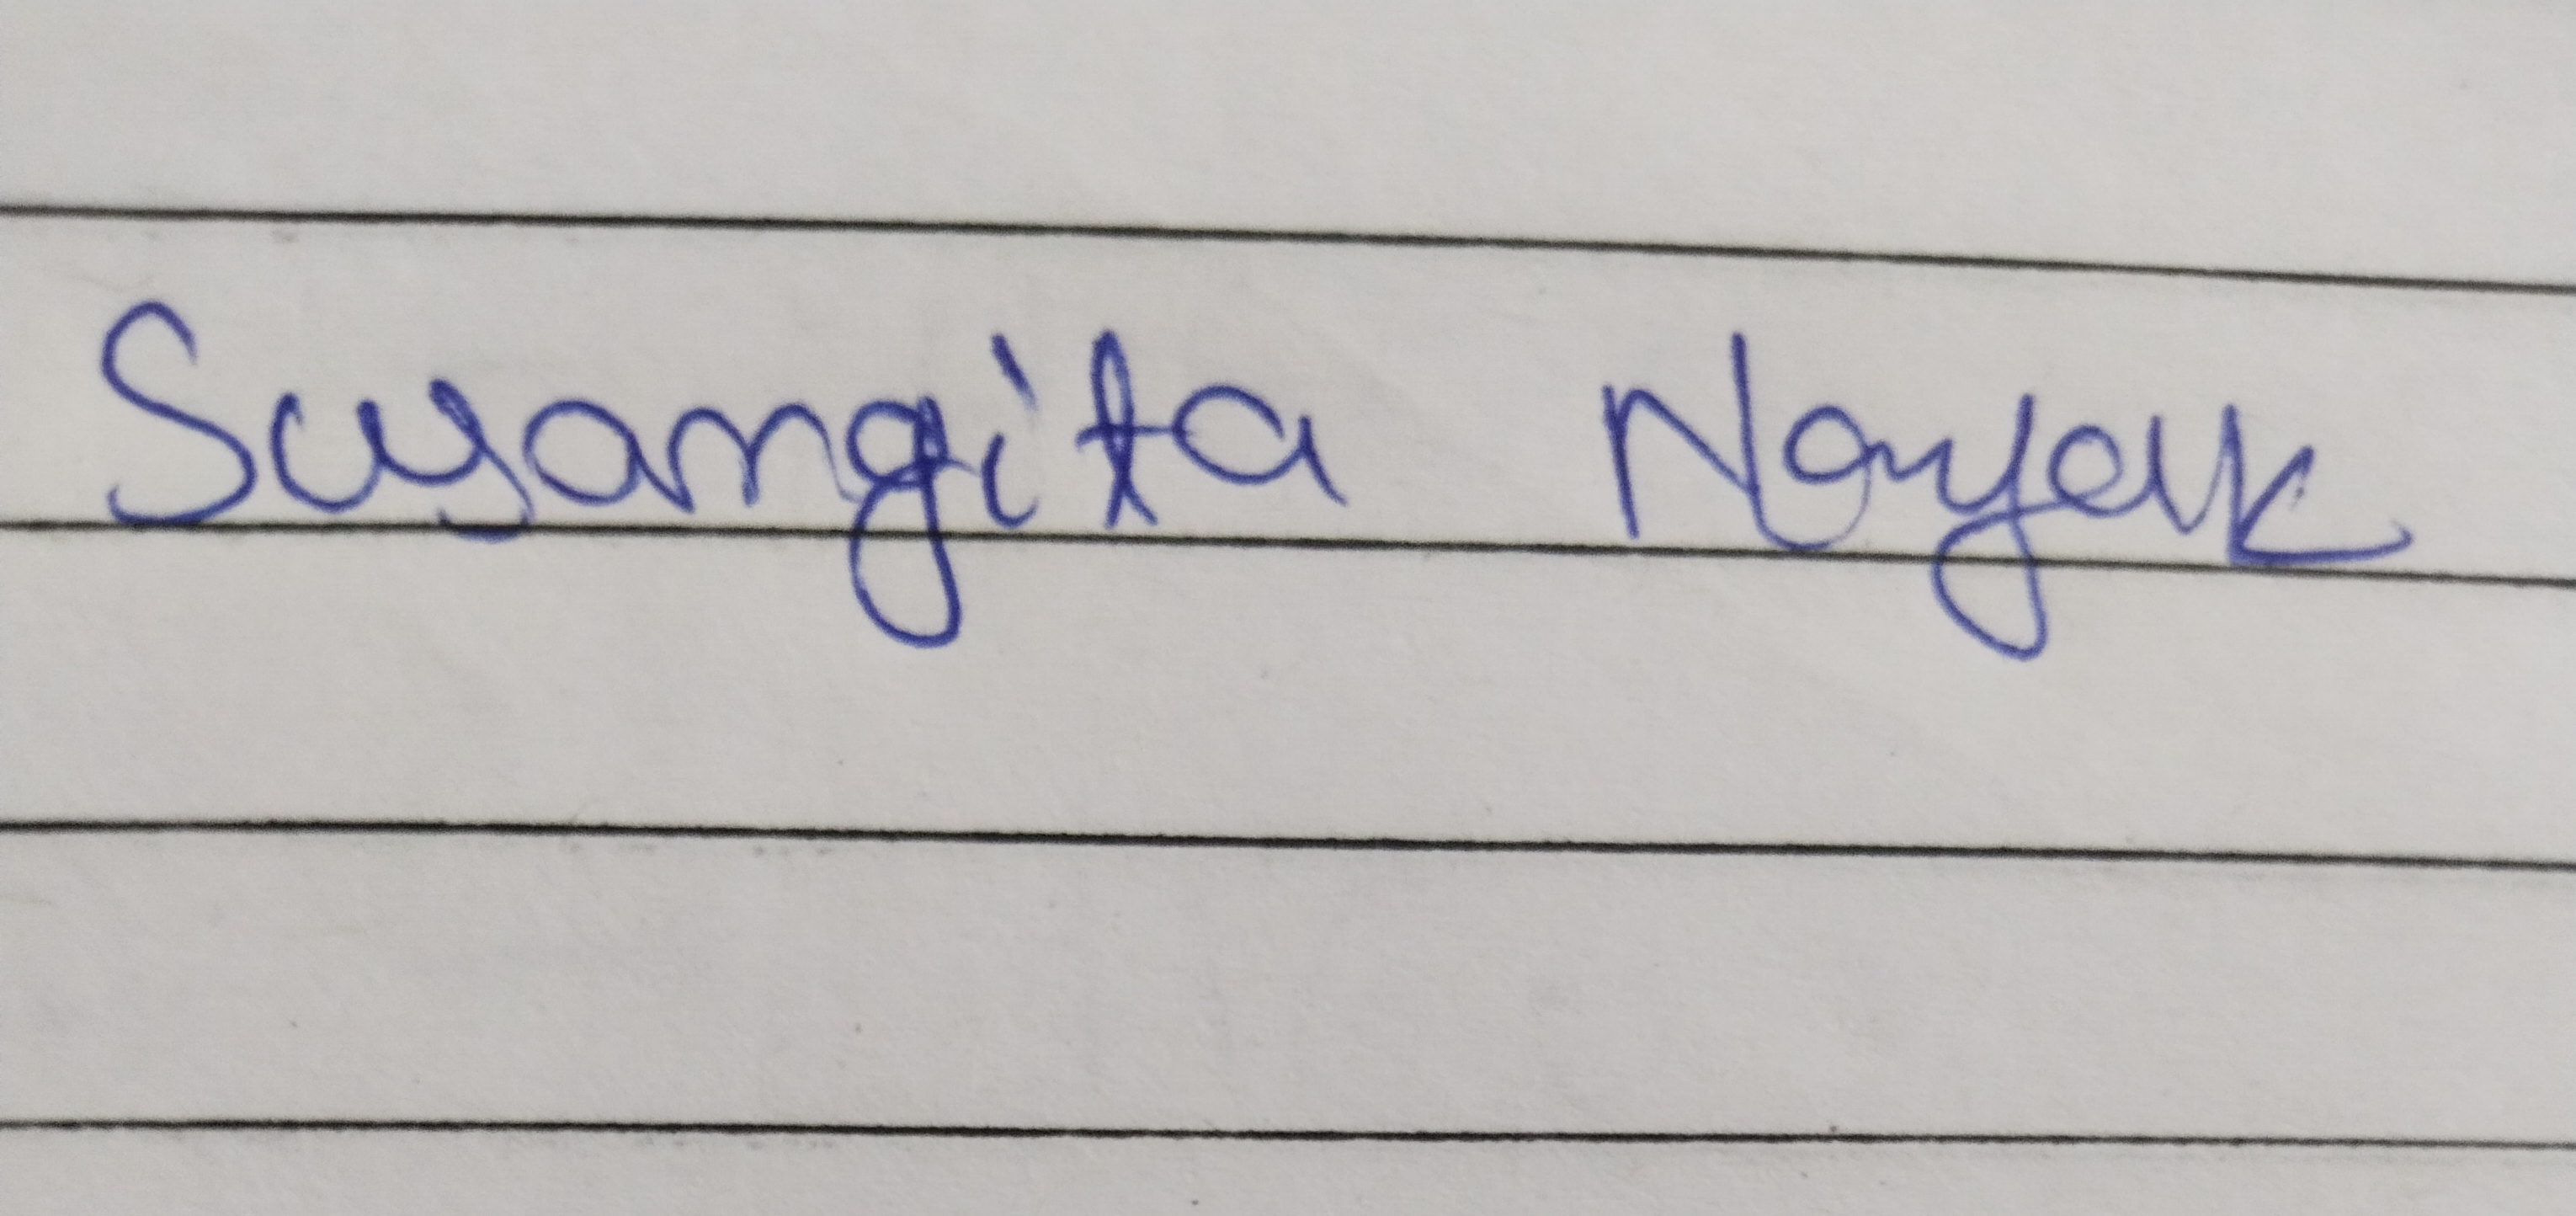 Susangita Nayak